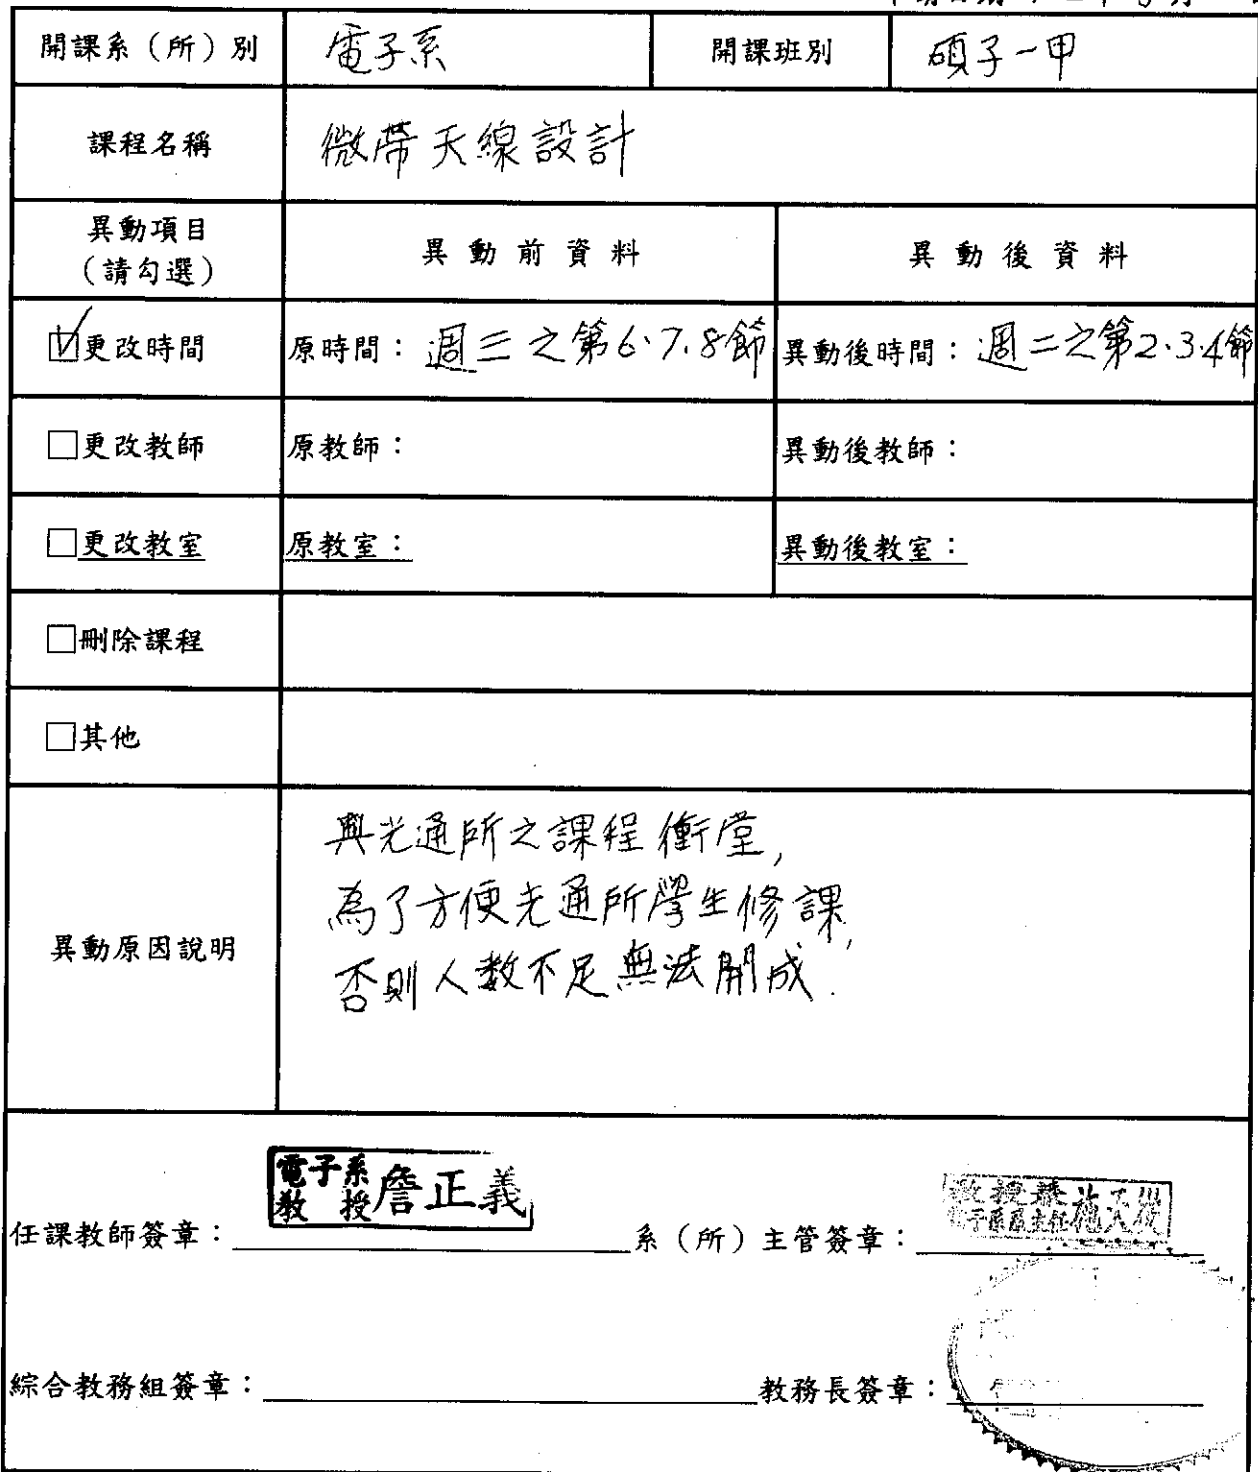 開課系（所）別 電子系 開課班別 碩子一甲
課程名稱 微帶天線設計
異動項目
（請勾選）
異動前資料 異動後資料
更改時間 原時間：週三之第6.7.8節 異動後時間：週二之第2.3.4節
□更改教師 原教師： 異動後教師：
□更改教室 原教室： 異動後教室：
□刪除課程
□其他
異動原因說明
與光通所之課程衝堂,
為了方便光通所學生修課,
否則人數不足無法開成.
電子系
教授 詹正義
任課教師簽章： 系（所）主管簽章：
教授兼
電子系系主任
綜合教務組簽章： 教務長簽章：